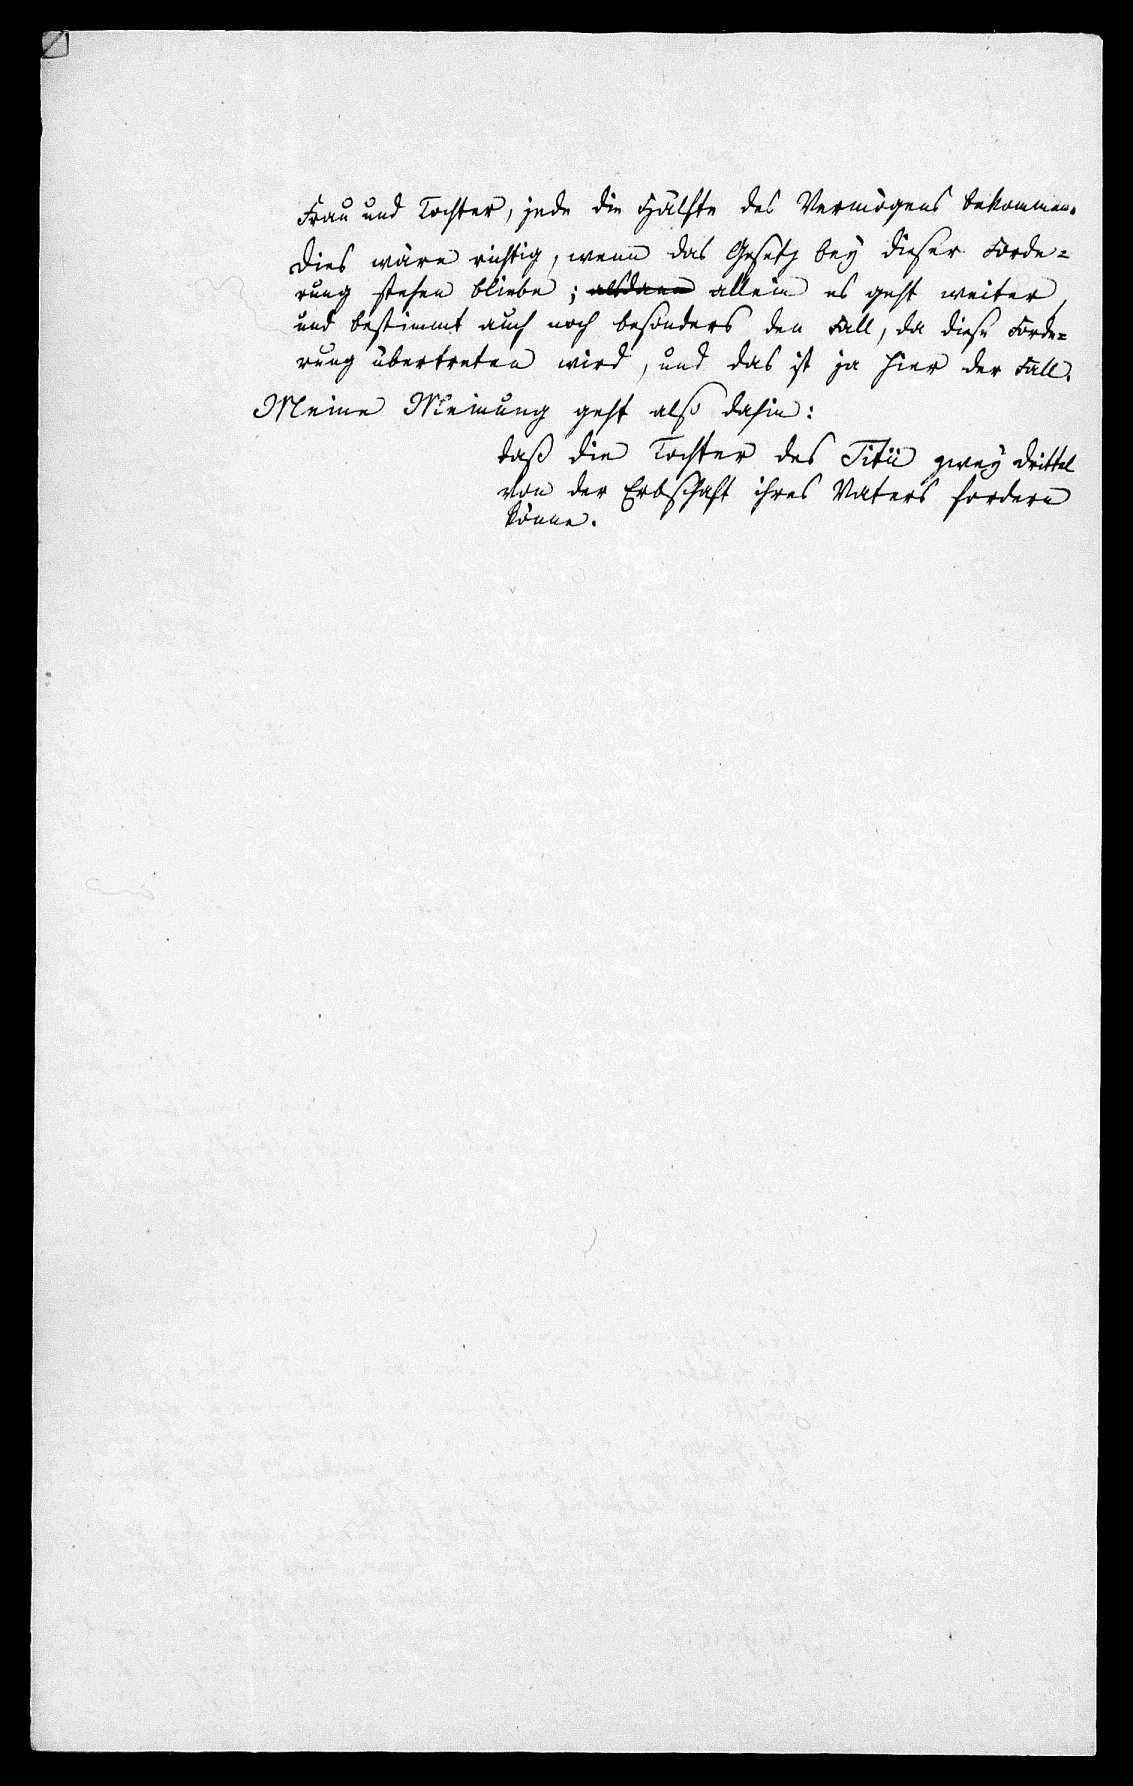 Frau und Tochter, jede die Hälfte des Vermögens bekommen.
Dies wäre richtig, wenn das Gesetz bey dieser Forde=
rung stehen bliebe; alsdann allein es geht weiter,
und bestimmt auch noch besonders den Fall, da diese Forde=
rung übertreten wird, und das ist ja hier der Fall.
Meine Meinung geht also dahin:
daß die Tochter des Titii zwey Drittel
von der Erbschaft ihres Vaters fordern
könne.